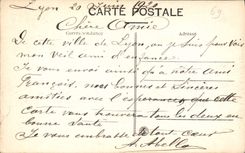 Lyon 20
CARTE POSTALE
Chère Amie
Correspondance Adresse
De cette ville de Lyon, où je suis pour vous
mon vieil ami d'enfance.
Je vous envoi ainsi qu'à notre ami
François, nos bonnes et Sincères
amitiés avec l'espérance que cette
Carte vous trouvera tous les deux en
bonne Santé
Je vous embrasse de tout cœur
A. Abello
69